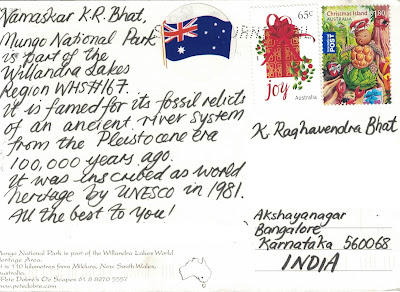 Namaskar K.R. Bhat,
Mungo National Park
is part of the
Willandra Lakes
Region WHS#167.
It is famed for its fossil relicts
of an ancient river system
from the Pleistocene era
100,000 years ago.
It was inscribed as world
heritage by UNESCO in 1981.
All the best to you!
Mungo National Park is part of the Willandra Lakes World
Heritage Area.
It is 110 kilometres from Mildura, New South Wales,
Australia.
Pete Dobré's Oz Scapes 61 8 8270 5557
www.petedobre.com
65c
joy
Australia
Christmas Island
AUSTRALIA
$1.80
INTERNATIONAL
POST
K. Raghavendra Bhat
Akshayanagar
Bangalore
Karnataka 560068
INDIA